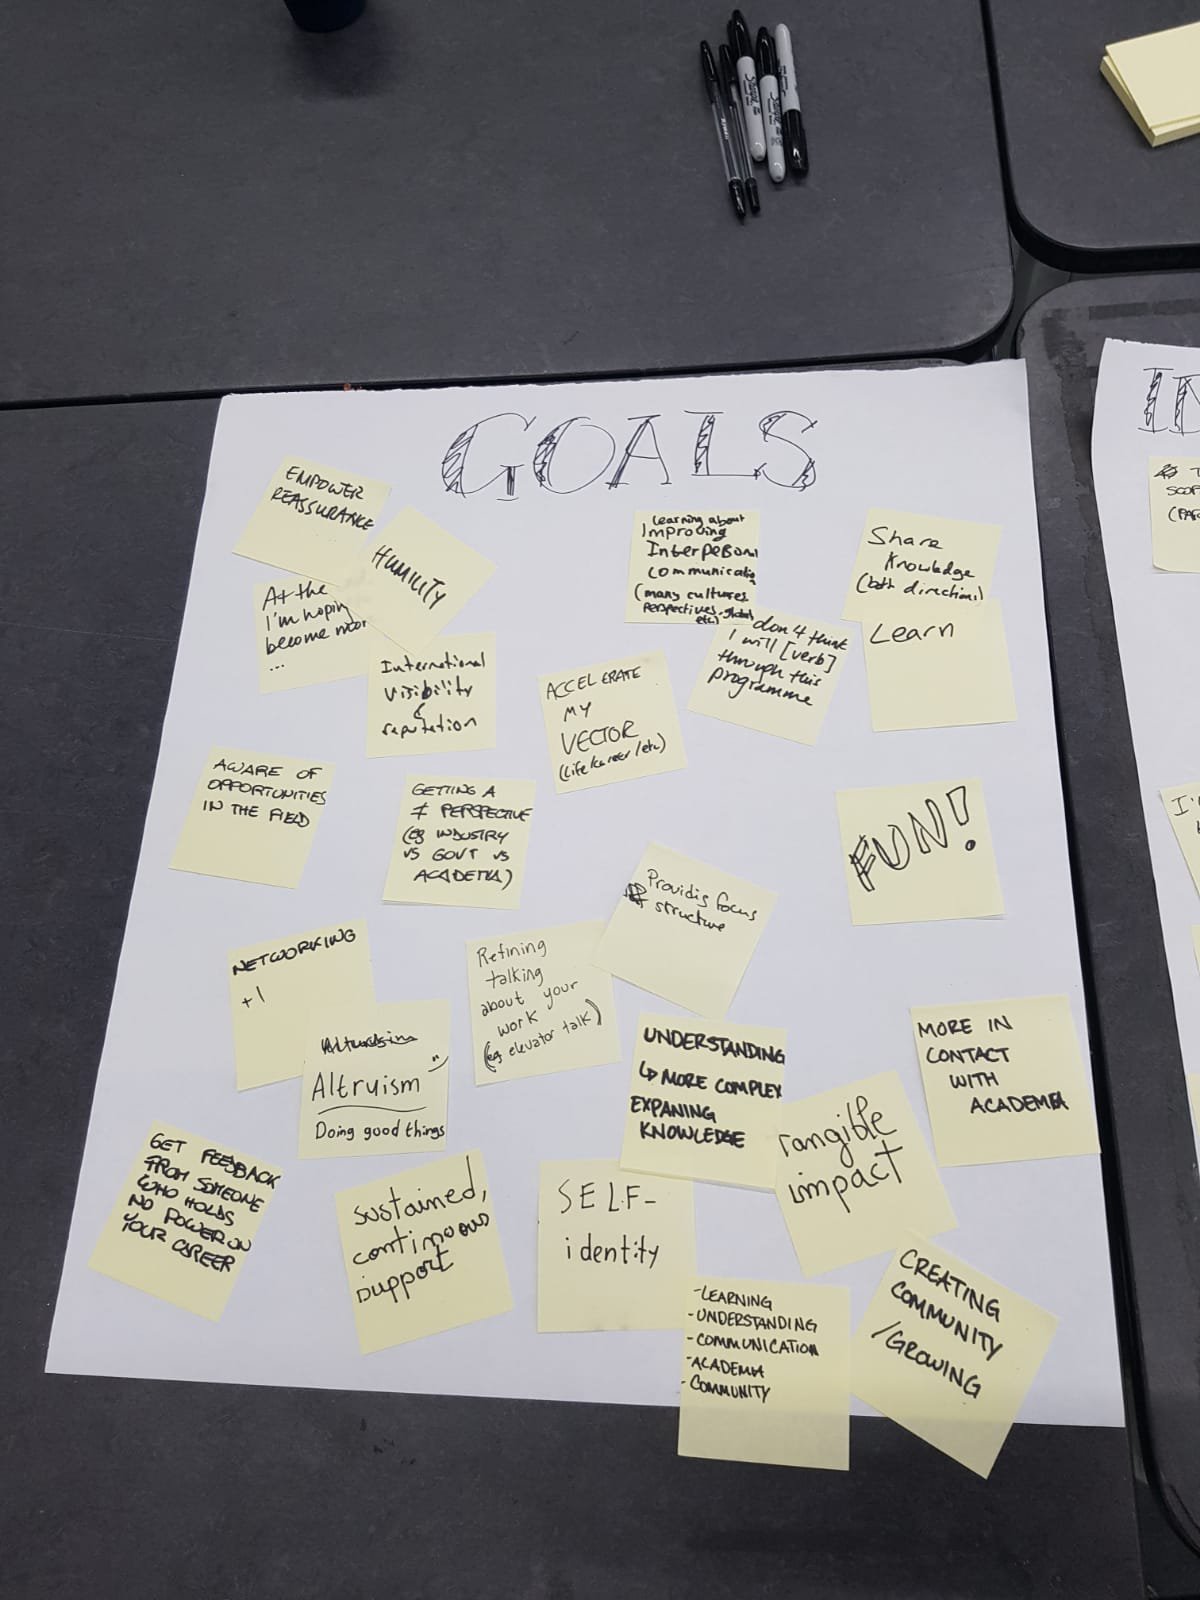 GOALS
EMPOWER
REASSURANCE
HUMILITY
At the
I'm hoping
become more
...
International
visibility
&
reputation
Learning about
Improving
Interpersonal
communication
(many cultures
perspectives, global
etc)
don't think
I will [verb]
through this
programme
Share
Knowledge
(both directions)
Learn
ACCELERATE
MY
VECTOR
(life/career/etc)
AWARE OF
OPPORTUNITIES
IN THE FIELD
GETTING A
≠ PERSPECTIVE
(eg INDUSTRY
VS GOVT VS
ACADEMIA)
FUN!
Providig focus
& structure
NETWORKING
+1
Refining
talking
about your
work
(eg elevator talk)
Altruism
Doing good things
UNDERSTANDING
↳ MORE COMPLEX
EXPANING
KNOWLEDGE
Tangible
impact
MORE IN
CONTACT
WITH
ACADEMIA
GET FEEDBACK
FROM SOMEONE
WHO HOLDS
NO POWER ON
YOUR CAREER
sustained,
continuous
support
SELF-
identity
-LEARNING
-UNDERSTANDING
-COMMUNICATION
-ACADEMIA
-COMMUNITY
CREATING
COMMUNITY
/GROWING
IN
SCOP
I'
Sharpie
Sharpie